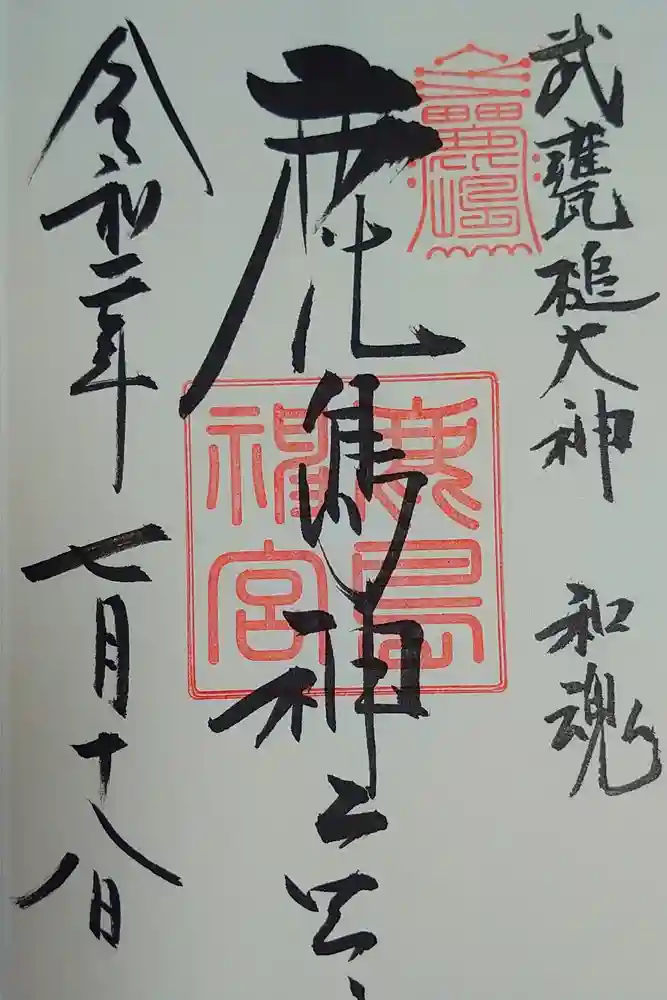 武甕槌大神 和魂
鹿島神宮
鹿島
神宮
令和二年 七月十八日